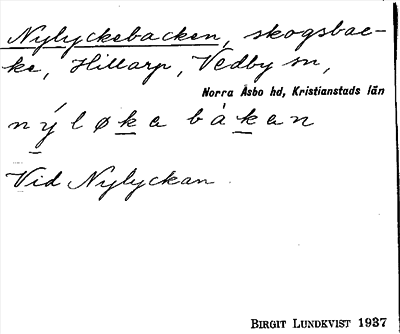 Nylyckebacken, skogsbac-
ke, Hillarp, Vedby sn,
Norra Åsbo hd, Kristianstads län
nýløke bàken
Vid Nylyckan.
BIRGIT LUNDKVIST 1937